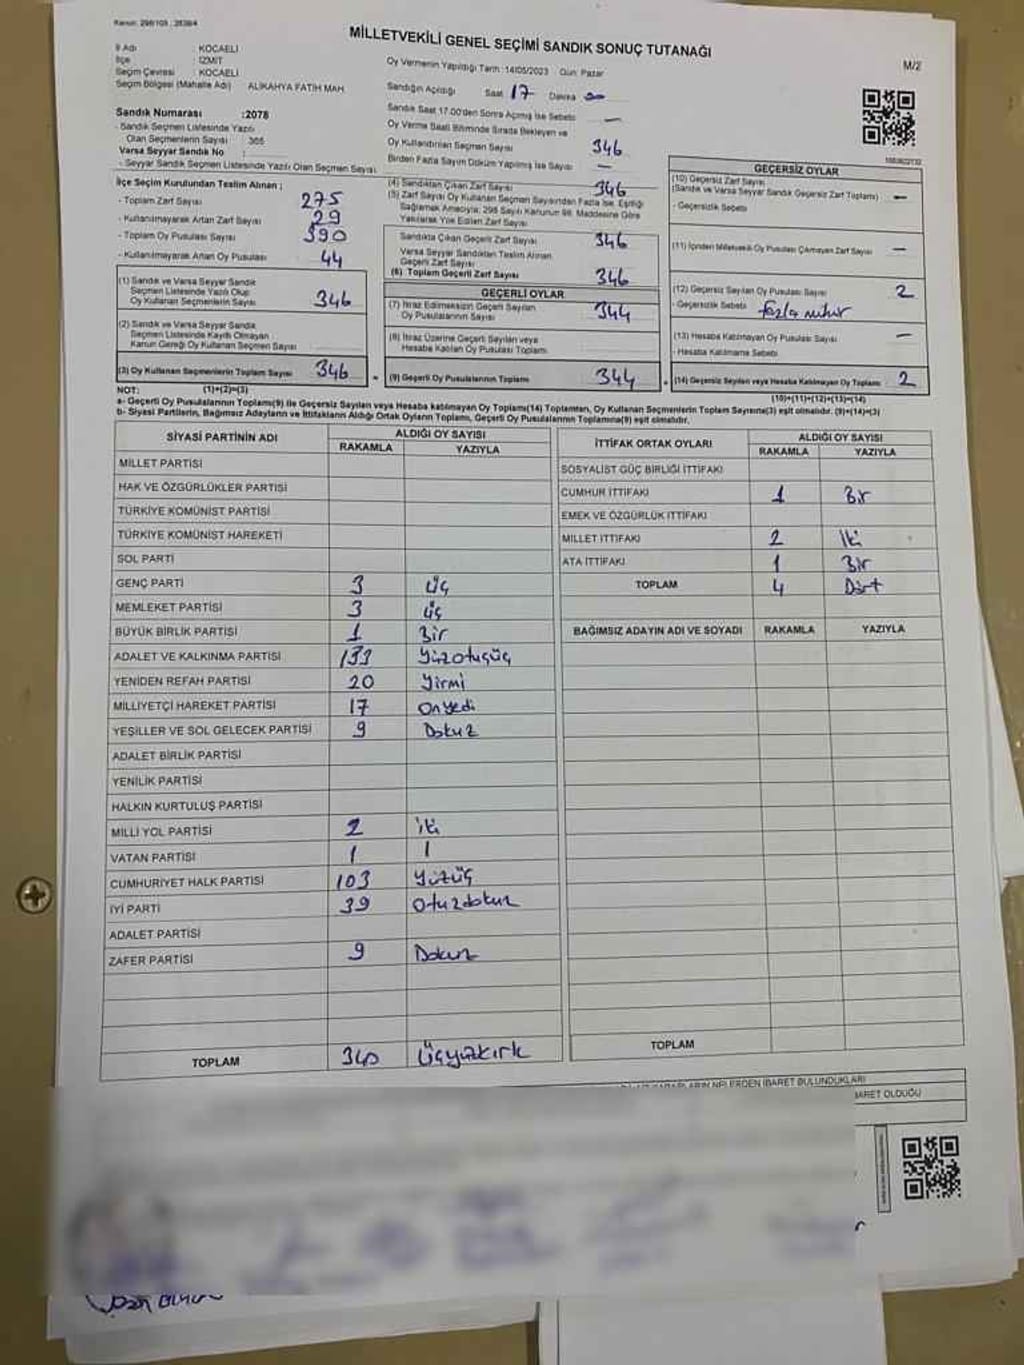 MİLLETVEKİLİ GENEL SEÇİMİ SANDIK SONUÇ TUTANAĞI
M/2
İl Adı : KOCAELİ
İlçe : İZMİT
Seçim Çevresi : KOCAELİ
Seçim Bölgesi (Mahalle Adı) ALİKAHYA FATİH MAH.
Sandık Numarası :2078
- Sandık Seçmen Listesinde Yazılı
Olan Seçmenlerin Sayısı : 365
Varsa Seyyar Sandık No :
- Seyyar Sandık Seçmen Listesinde Yazılı Olan Seçmen Sayısı
Oy Vermenin Yapıldığı Tarih : 14/05/2023 Gün: Pazar
Sandığın Açıldığı Saat 17 Dakika
Sandık Saat 17.00'den Sonra Açılmış İse Sebebi —
Oy Verme Saati Bitiminde Sırada Bekleyen ve
Oy Kullandırılan Seçmen Sayısı 346
Birden Fazla Sayım Döküm Yapılmış İse Sayısı —
İlçe Seçim Kurulundan Teslim Alınan :
- Toplam Zarf Sayısı 275
- Kullanılmayarak Artan Zarf Sayısı 29
- Toplam Oy Pusulası Sayısı 390
- Kullanılmayarak Artan Oy Pusulası 44
(1) Sandık ve Varsa Seyyar Sandık
Seçmen Listesinde Yazılı Olup
Oy Kullanan Seçmenlerin Sayısı 346
(2) Sandık ve Varsa Seyyar Sandık
Seçmen Listesinde Kayıtlı Olmayan
Kanun Gereği Oy Kullanan Seçmen Sayısı
(3) Oy Kullanan Seçmenlerin Toplam Sayısı 346
(4) Sandıktan Çıkan Zarf Sayısı 346
(5) Zarf Sayısı Oy Kullanan Seçmen Sayısından Fazla İse, Eşitliği
Sağlamak Amacıyla; 298 Sayılı Kanunun 98. Maddesine Göre
Yakılarak Yok Edilen Zarf Sayısı
Sandıkta Çıkan Geçerli Zarf Sayısı 346
Varsa Seyyar Sandıktan Teslim Alınan
Geçerli Zarf Sayısı
(6) Toplam Geçerli Zarf Sayısı 346
GEÇERLİ OYLAR
(7) İtiraz Edilmeksizin Geçerli Sayılan
Oy Pusulalarının Sayısı 344
(8) İtiraz Üzerine Geçerli Sayılan veya
Hesaba Katılan Oy Pusulası Toplamı
(9) Geçerli Oy Pusulalarının Toplamı 344
GEÇERSİZ OYLAR
(10) Geçersiz Zarf Sayısı
(Sandık ve Varsa Seyyar Sandık Geçersiz Zarf Toplamı) —
- Geçersizlik Sebebi
(11) İçinden Milletvekili Oy Pusulası Çıkmayan Zarf Sayısı —
(12) Geçersiz Sayılan Oy Pusulası Sayısı 2
- Geçersizlik Sebebi fazla mühür
(13) Hesaba Katılmayan Oy Pusulası Sayısı —
- Hesaba Katılmama Sebebi
(14) Geçersiz Sayılan veya Hesaba Katılmayan Oy Toplamı 2
NOT: (1)+(2)=(3) (10)+(11)+(12)+(13)=(14)
a- Geçerli Oy Pusulaları Toplamı(9) ile Geçersiz Sayılan veya Hesaba katılmayan Oy Toplamı(14) Toplamları, Oy Kullanan Seçmenlerin Toplam Sayısına(3) eşit olmalıdır. (9)+(14)=(3)
b- Siyasi Partilerin, Bağımsız Adayların ve İttifakların Aldığı Ortak Oyların Toplamı, Geçerli Oy Pusulalarının Toplamına(9) eşit olmalıdır.
SİYASİ PARTİNİN ADI ALDIĞI OY SAYISI
RAKAMLA YAZIYLA
MİLLET PARTİSİ
HAK VE ÖZGÜRLÜKLER PARTİSİ
TÜRKİYE KOMÜNİST PARTİSİ
TÜRKİYE KOMÜNİST HAREKETİ
SOL PARTİ
GENÇ PARTİ 3 üç
MEMLEKET PARTİSİ 3 üç
BÜYÜK BİRLİK PARTİSİ 1 Bir
ADALET VE KALKINMA PARTİSİ 133 Yüzotuzüç
YENİDEN REFAH PARTİSİ 20 Yirmi
MİLLİYETÇİ HAREKET PARTİSİ 17 onyedi
YEŞİLLER VE SOL GELECEK PARTİSİ 9 Dokuz
ADALET BİRLİK PARTİSİ
YENİLİK PARTİSİ
HALKIN KURTULUŞ PARTİSİ
MİLLİ YOL PARTİSİ 2 iki
VATAN PARTİSİ 1 1
CUMHURİYET HALK PARTİSİ 103 Yüzüç
İYİ PARTİ 39 otuzdokuz
ADALET PARTİSİ
ZAFER PARTİSİ 9 Dokuz
TOPLAM 340 Üçyüzkırk
İTTİFAK ORTAK OYLARI ALDIĞI OY SAYISI
RAKAMLA YAZIYLA
SOSYALİST GÜÇ BİRLİĞİ İTTİFAKI
CUMHUR İTTİFAKI 1 Bir
EMEK VE ÖZGÜRLÜK İTTİFAKI
MİLLET İTTİFAKI 2 İki
ATA İTTİFAKI 1 Bir
TOPLAM 4 Dört
BAĞIMSIZ ADAYIN ADI VE SOYADI RAKAMLA YAZIYLA
TOPLAM
NELERDEN İBARET BULUNDUKLARI
OLDUĞU